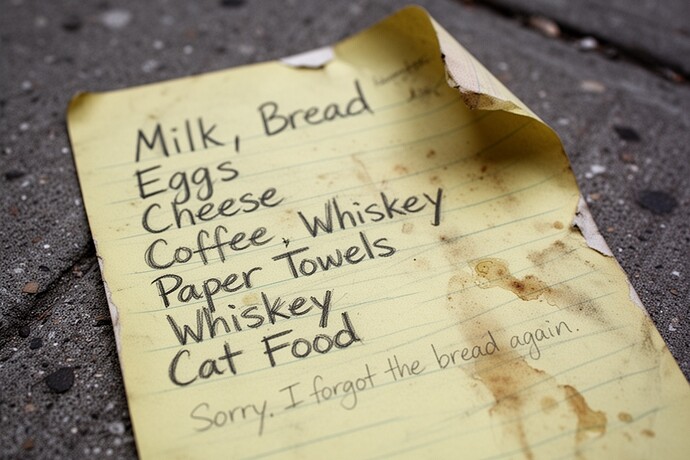 Milk, Bread
Eggs
Cheese
Coffee, Whiskey
Paper Towels
Whiskey
Cat Food
Sorry. I forgot the bread again.